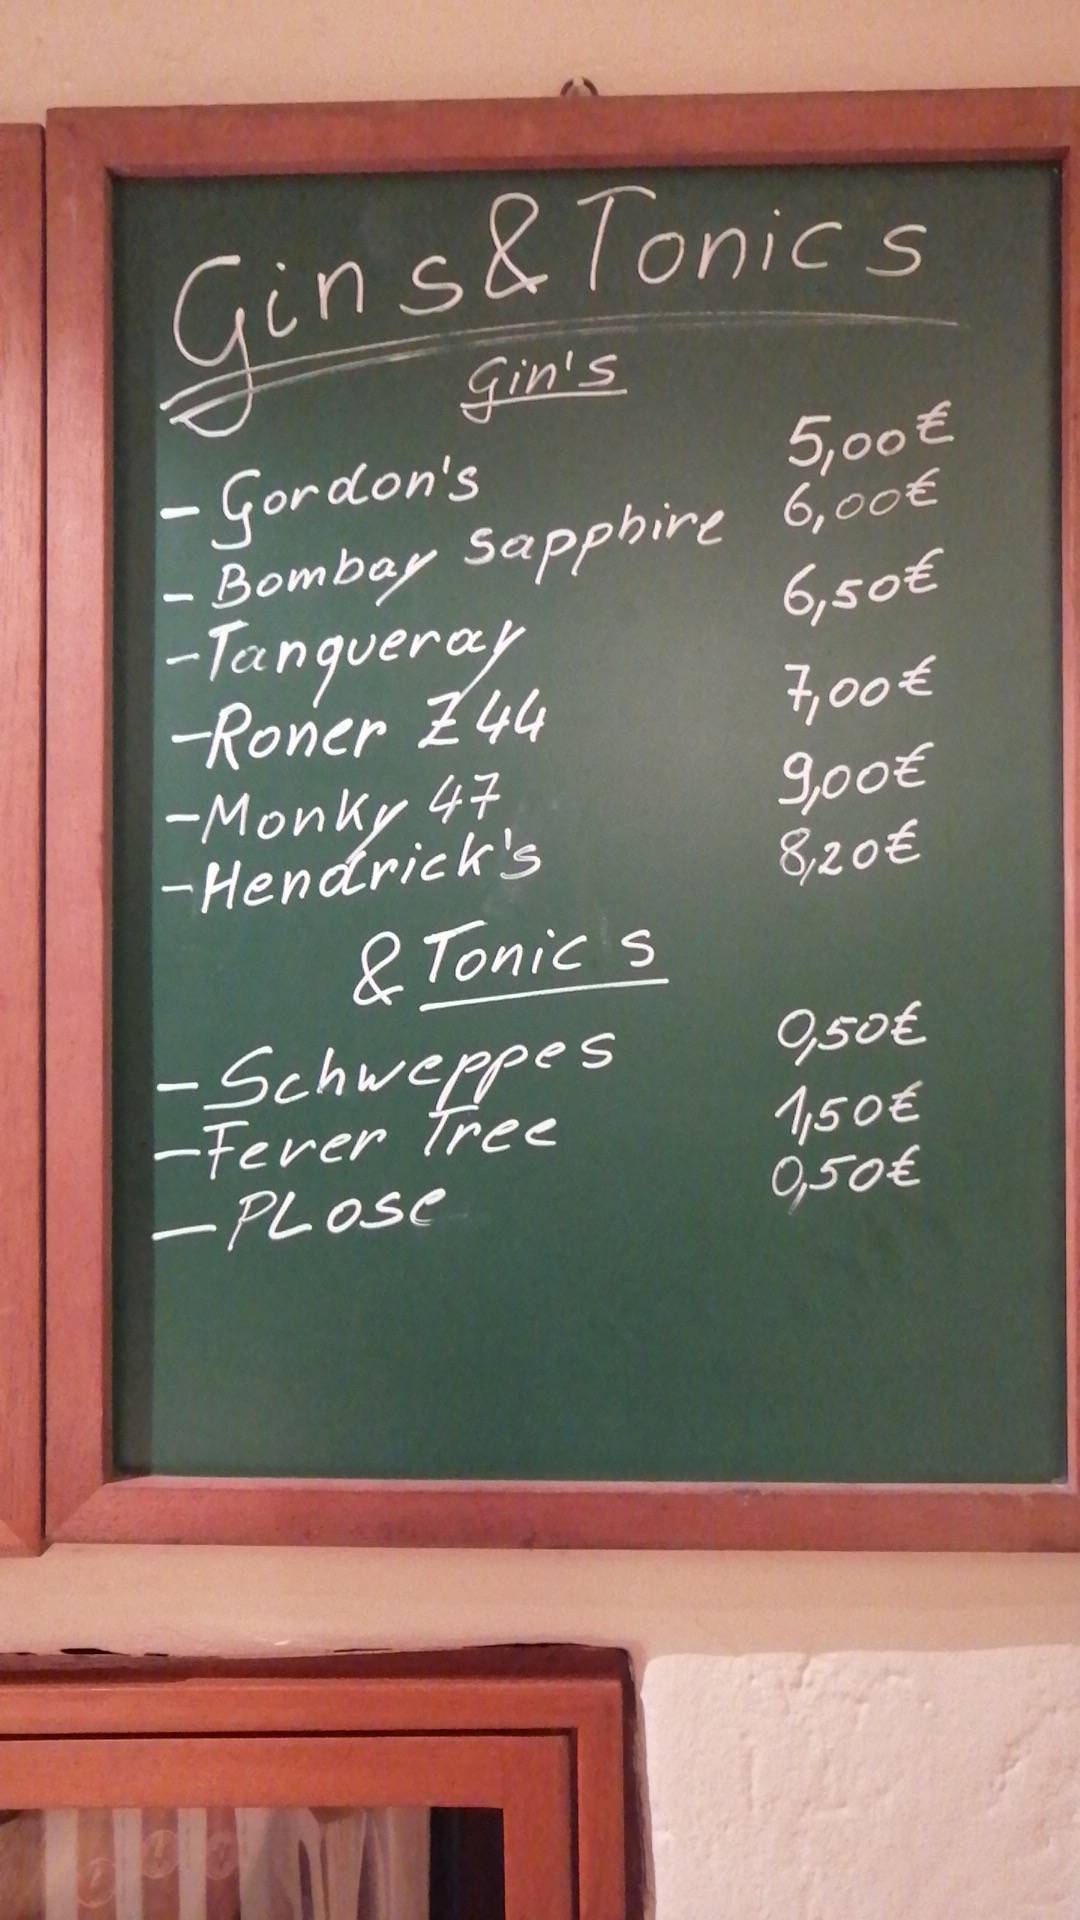 Gins & Tonics
Gin's
- Gordon's 5,00€
- Bombay Sapphire 6,00€
- Tanqueray 6,50€
- Roner Z44 7,00€
- Monky 47 9,00€
- Hendrick's 8,20€
& Tonics
- Schweppes 0,50€
- Fever Tree 1,50€
- PLose 0,50€